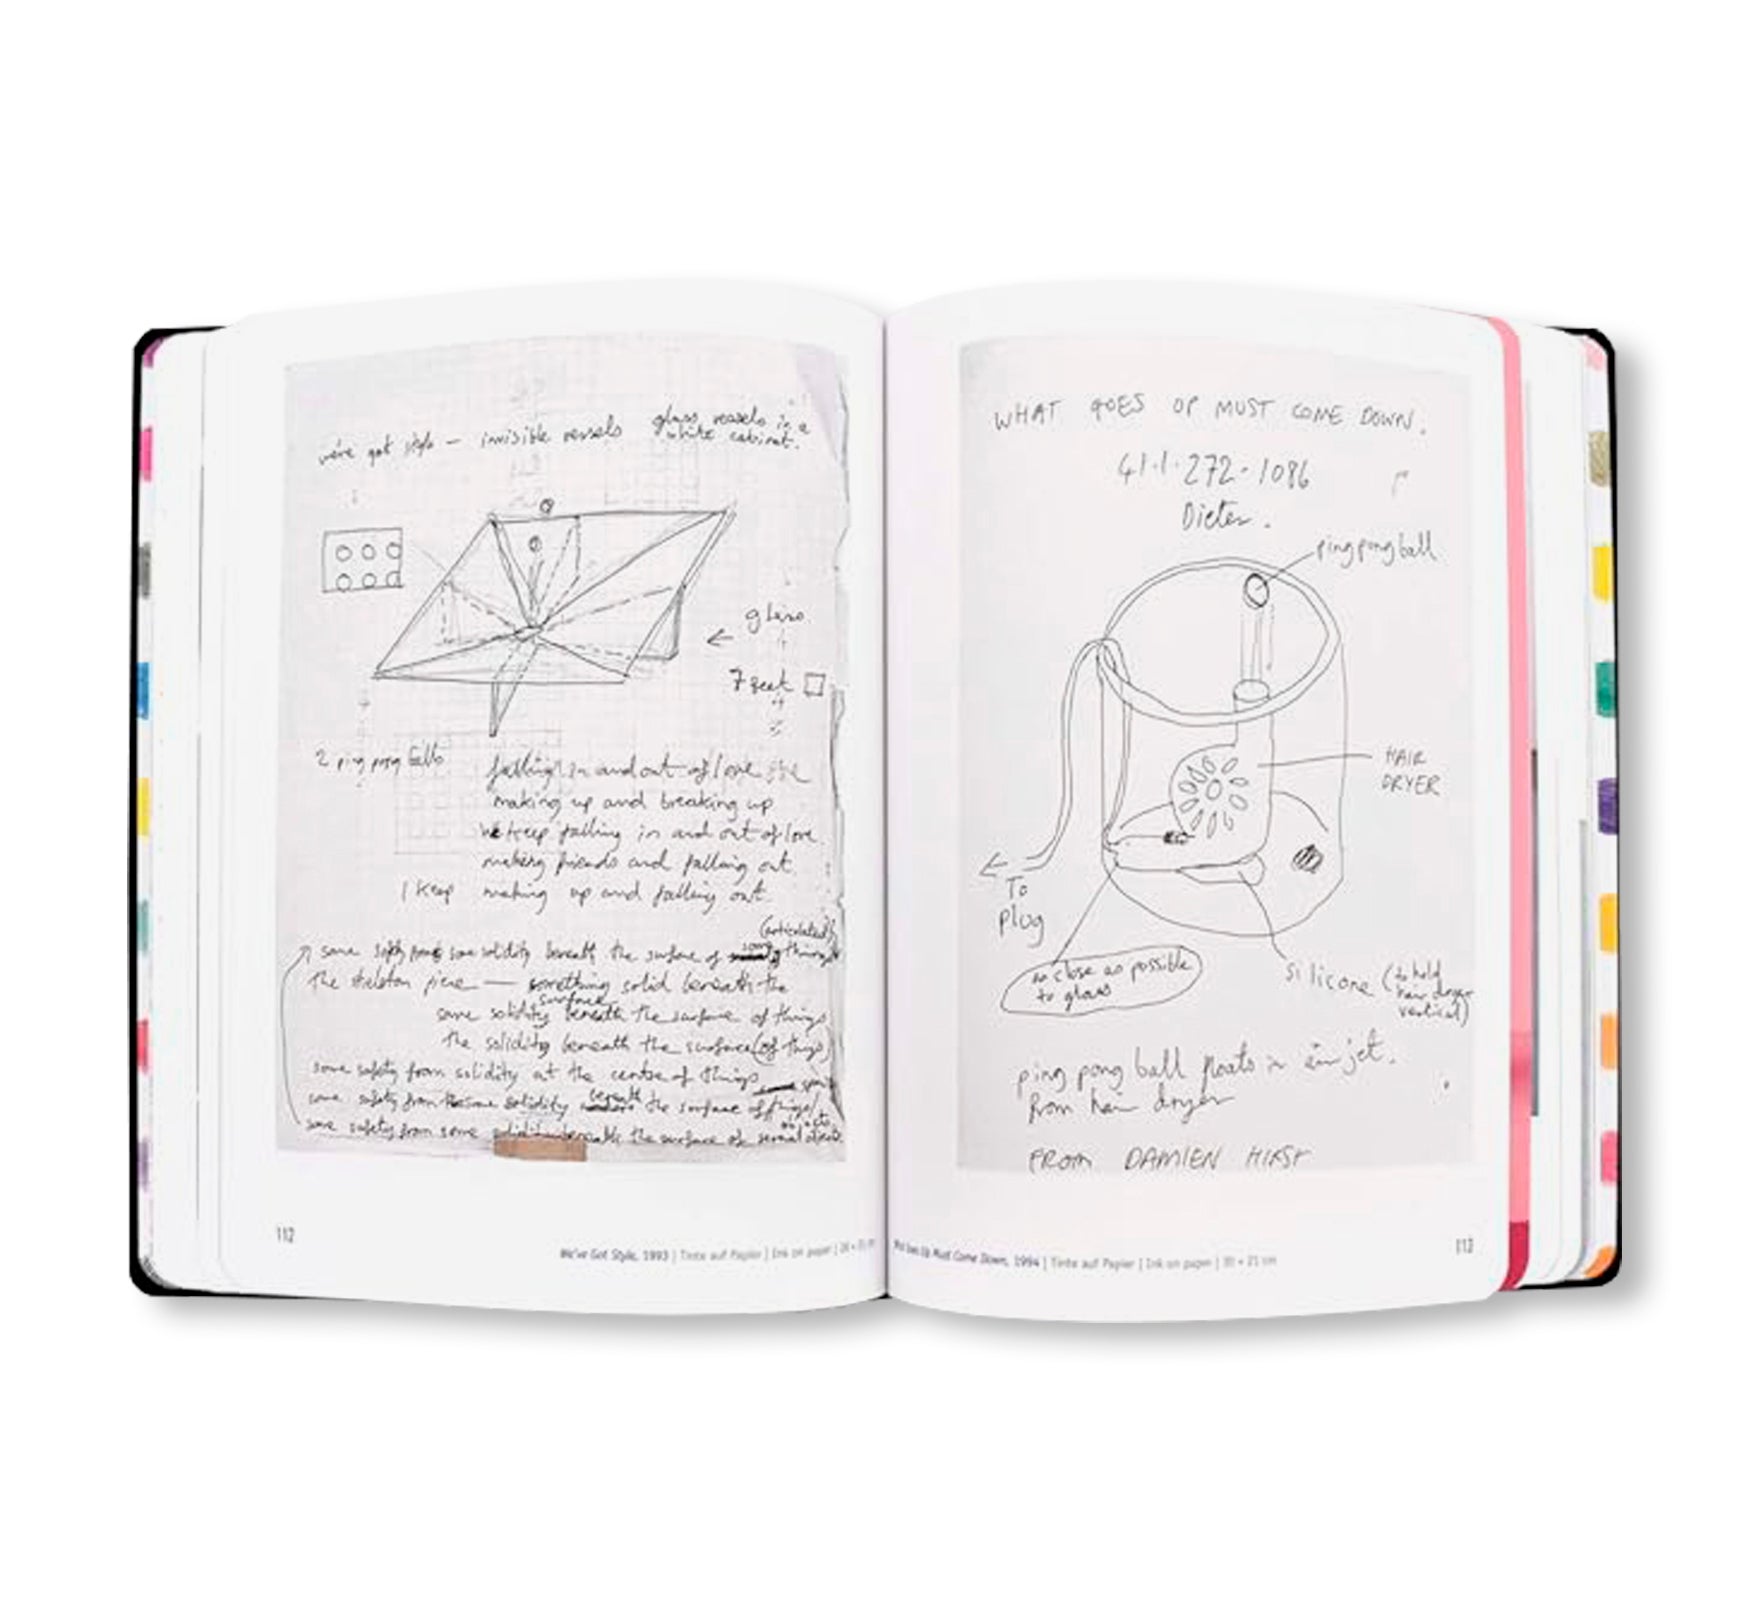 we've got style — invisible vessels
glass vessels in a
white cabinet.
glass
7 feet
2 ping pong balls
falling in and out of love
making up and breaking up
we keep falling in and out of love
making friends and falling out.
I keep making up and falling out.
(articulated)
some safety from some solidity beneath the surface of things
the skeleton piece — something solid beneath the
surface
some solidity beneath the surface of things
the solidity beneath the surface (of things)
some safety from solidity at the centre of things
some safety from some solidity beneath the surface of things
some safety from some solidity beneath the surface of several objects
112
We've Got Style, 1993 | Tinte auf Papier | Ink on paper |
WHAT GOES UP MUST COME DOWN.
41·1·272·1086
Dieter.
ping pong ball
HAIR
DRYER
To
plug
as close as possible
to glass
silicone (to hold
hair dryer
vertical)
ping pong ball floats in air jet.
from hair dryer
FROM DAMIEN HIRST
Up Must Come Down, 1994 | Tinte auf Papier | Ink on paper | 30 × 21 cm
113